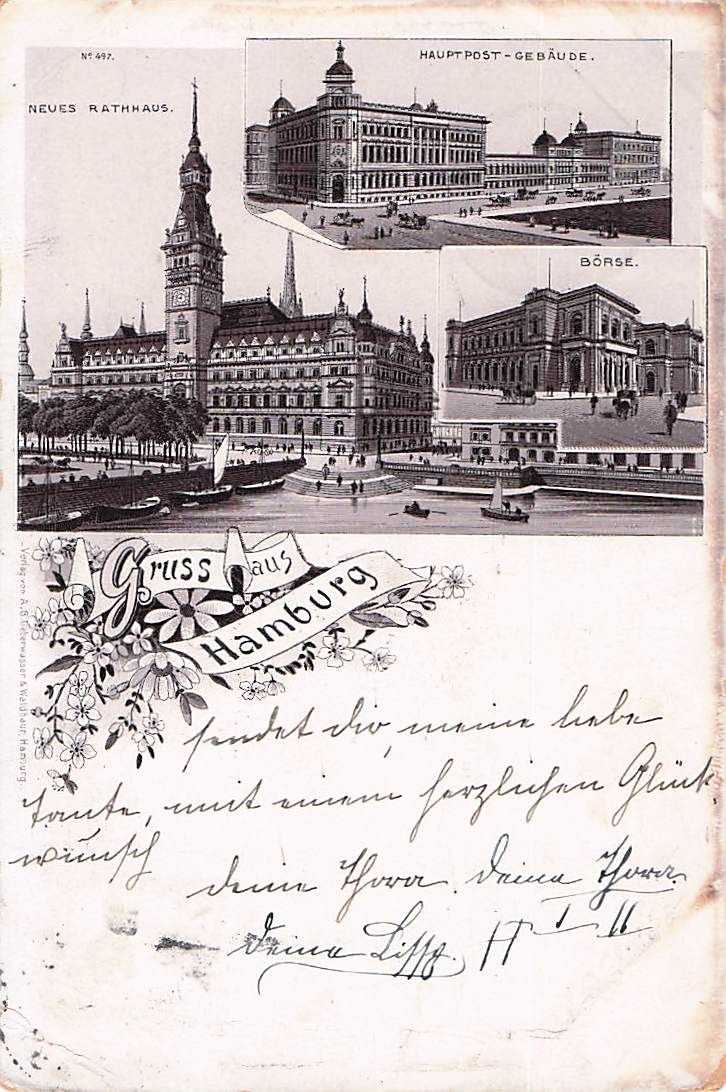 Nº 497.
HAUPTPOST-GEBÄUDE.
NEUES RATHHAUS.
BÖRSE.
Gruss aus
Hamburg
Verlag von A. B. Ueberwasser & Waldhaur, Hamburg.
sendet dir, meine liebe
tante, mit einem herzlichen Glück
wunsch
deine Thora. Deine Thora.
Deine Lissy.